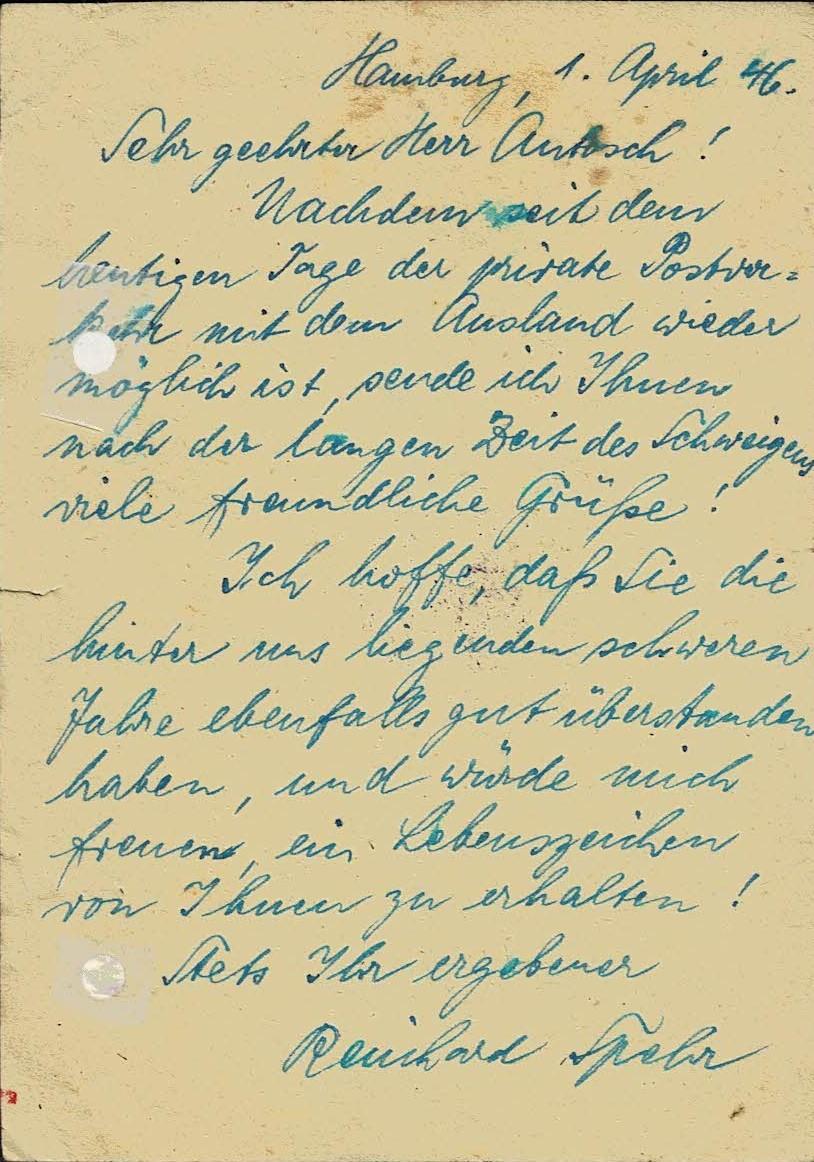 Hamburg, 1. April 46.
Sehr geehrter Herr Antosch!
Nachdem seit dem
heutigen Tage der private Postver=
kehr mit dem Ausland wieder
möglich ist, sende ich Ihnen
nach der langen Zeit des Schweigens
viele freundliche Grüße!
Ich hoffe, daß Sie die
hinter uns liegenden schweren
Jahre ebenfalls gut überstanden
haben, und würde mich
freuen, ein Lebenszeichen
von Ihnen zu erhalten!
Stets Ihr ergebener
Reinhard Spehr